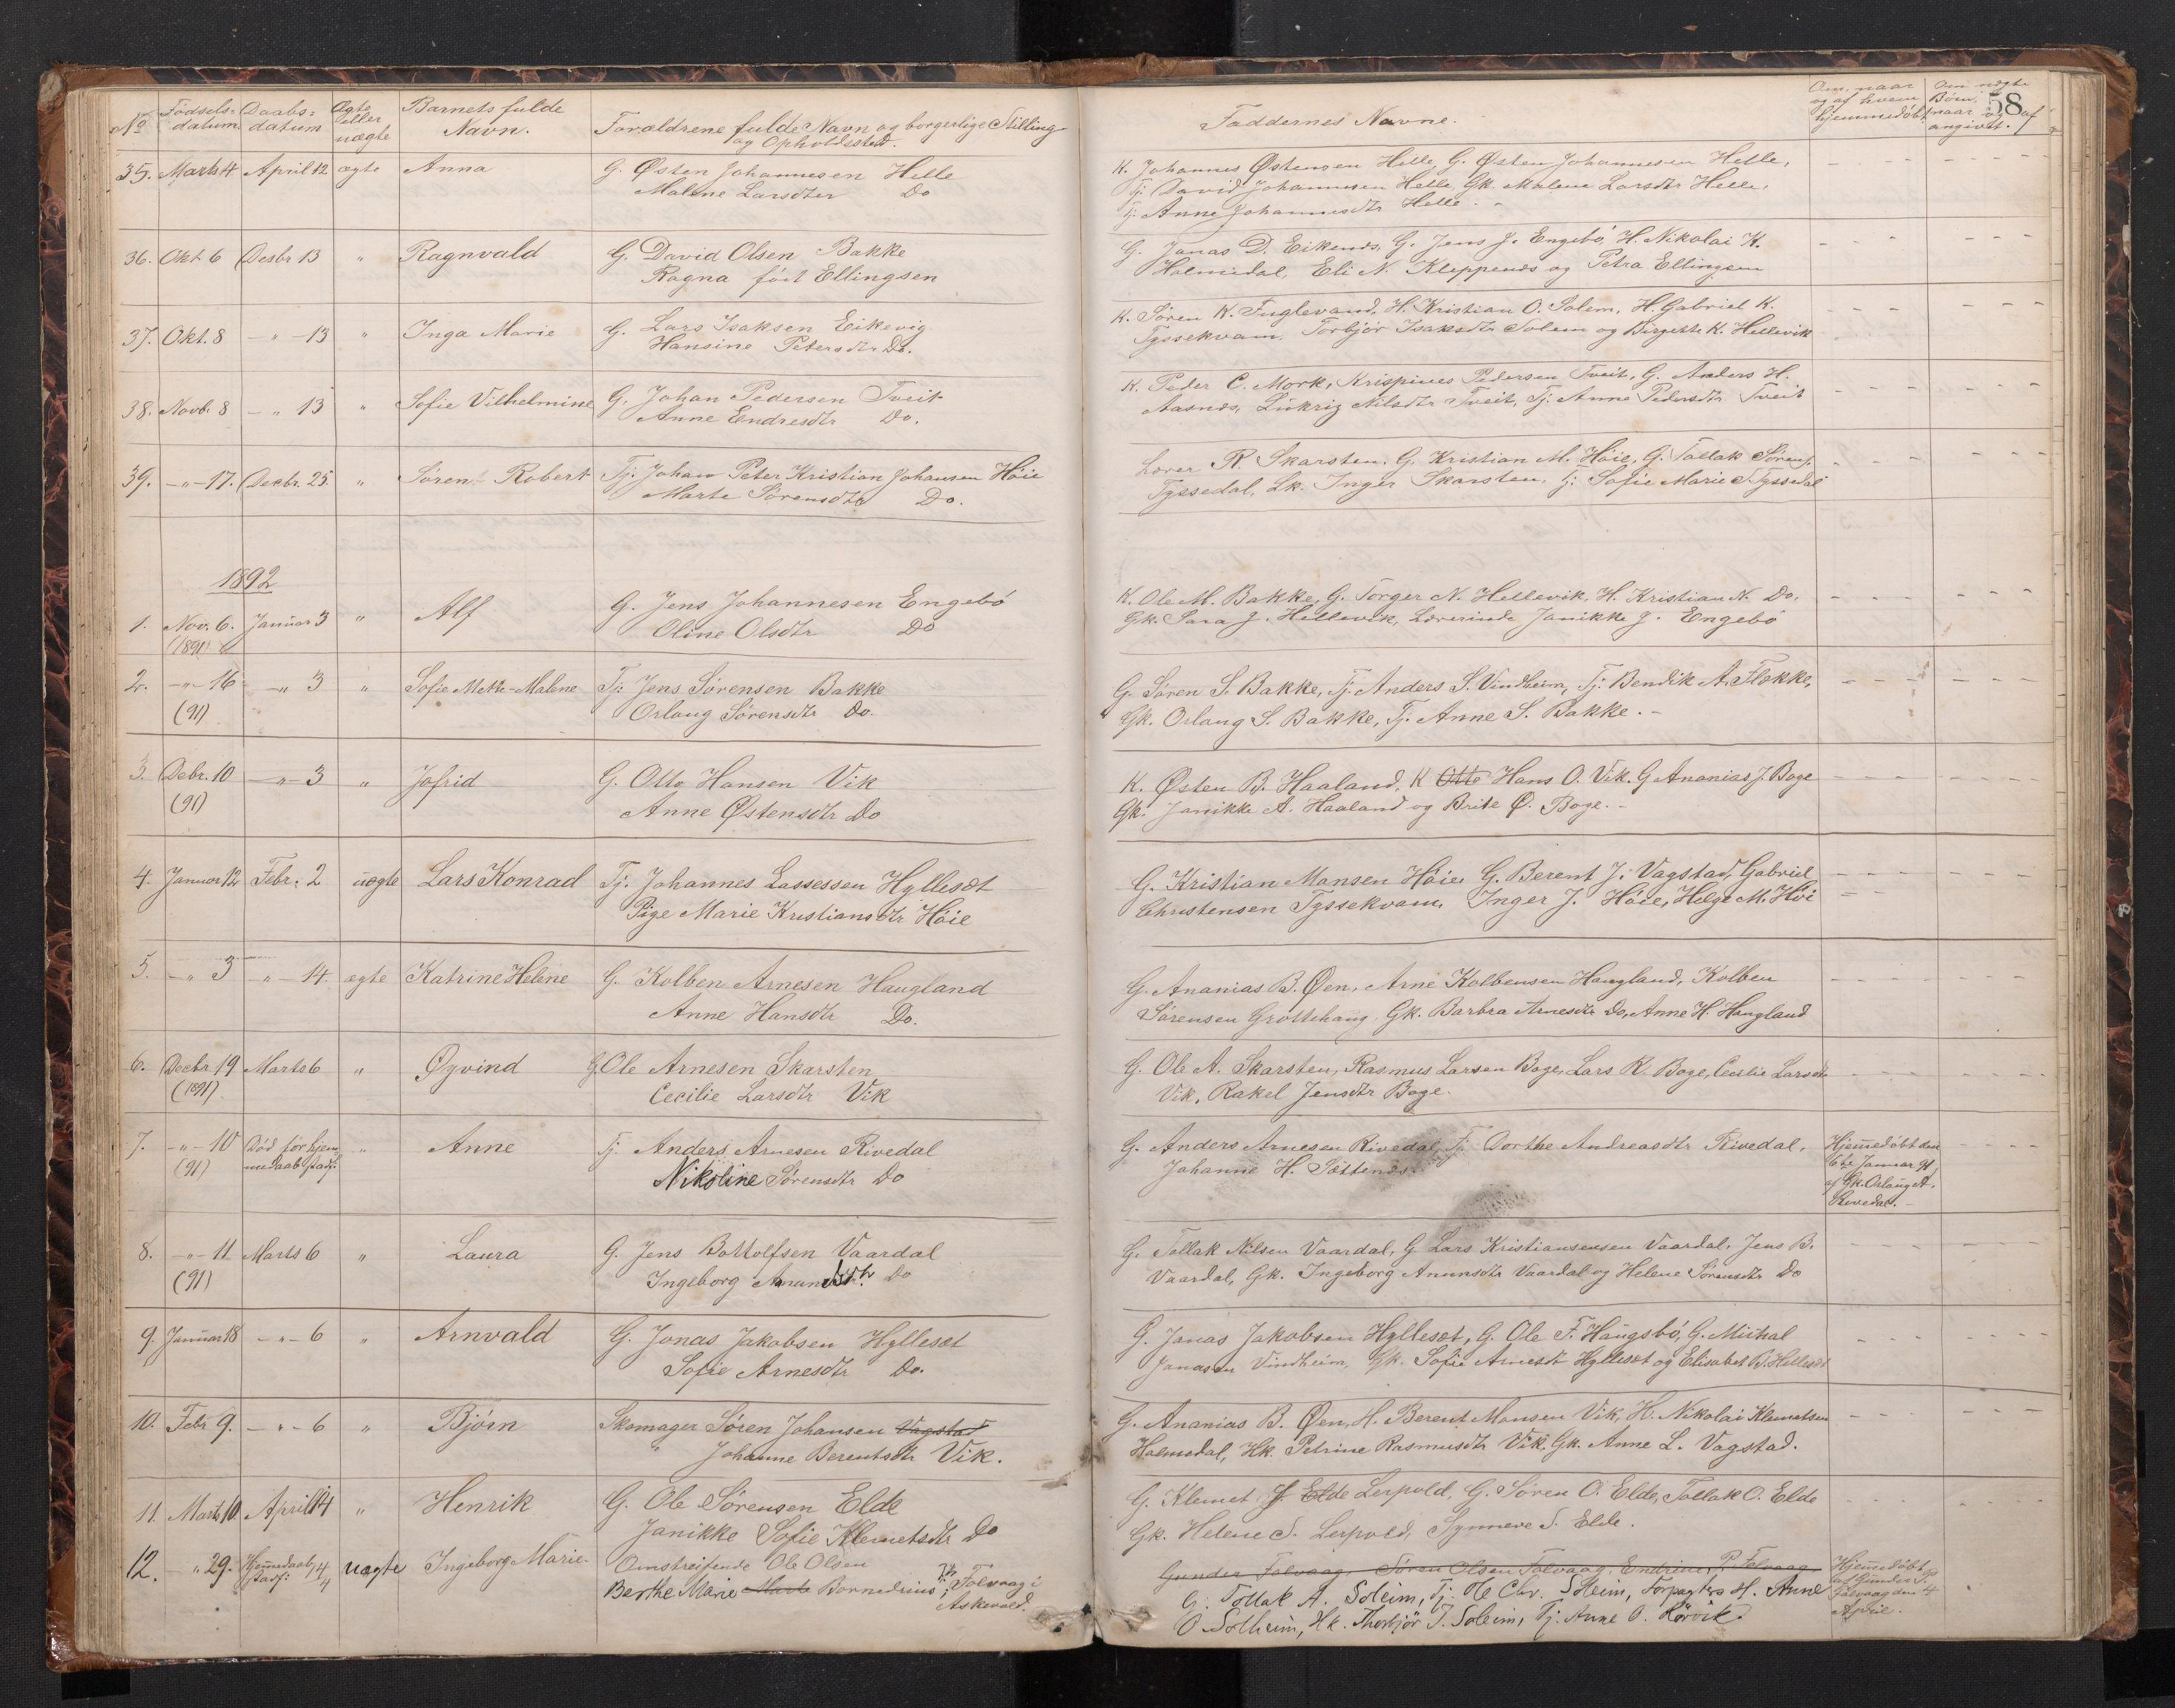 No Fødsels-datum Daabs-datum Ægte eller uægte Barnets fulde Navn. Forældrene fulde Navn og borgerlige Stilling og Opholdssted. Faddernes Navne. Om, naar og af hvem hjemmedøbt Om uægte Børn, naar og af angivet. 58
35. Marts 4 April 12 ægte Anna G. Østen Johannesen Helle K. Johannes Østensen Helle, G. Østen Johannesen Helle,
Malene Larsdter Do Tj. David Johannesen Helle, Gk. Malene Larsdtr Helle,
Tj: Anne Johannesdtr Helle. -
36. Okt. 6 Desbr 13 " Ragnvald G. David Olsen Bakke G. Jonas D. Eikenes, G. Jens J. Engebó, H. Nikolai K.
Ragna fód Ellingsen Holmedal, Eli N. Kleppenes og Petra Ellingsen
37. Okt. 8 - " - 13 " Inga Marie G. Lars Isaksen Eikevig K. Sören K. Fuglevand, H. Kristian O. Solem, H. Gabriel K.
Hansine Petersdtr Do. Tyssekvam, Torbjör Isaksdtr Solem og Birgitte K. Hellevik
38. Novb. 8 - " 13 " Sofie Vilhelmine G. Johan Pedersen Tveit K. Peder C. Mork, Krispines Pedersen Tveit, G. Anders H.
Anne Endresdtr Do. Aasnes, Lükrig Nilsdtr Tveit, Tj. Anne Pedersdtr Tveit
39. - " - 17. Decbr. 25. " Sören Robert Tj. Johan Peter Kristian Johansen Höie Lærer R. Skarsten, G. Kristian M. Höie, G. Tollak Sörens.
Marte Sörensdtr Do. Tyssedal, Lk. Inger Skarsten, Tj: Sofie Marie T. Tyssedal
1892
1. Nov. 6. Januar 3 " Alf G. Jens Johannesen Engebó K. Ole M. Bakke, G. Torger N. Hellevik, H. Kristian N. Do.
(1891) Oline Olsdtr Do Gk. Sara J. Hellevik, Lærerinde Janikke J. Engebó
2. - " - 16 - " 3 " Sofie Mette-Malene Tj: Jens Sörensen Bakke G. Sören S. Bakke, Tj. Anders S. Vindheim, Tj. Bendik A. Flokke,
(91) Orlaug Sörensdtr Do. Gk. Orlaug S. Bakke, Tj. Anne S. Bakke. -
3. Debr. 10 - " - 3 " Jofrid G. Otto Hansen Vik K. Østen B. Haaland, K Otto Hans O. Vik. G Ananias J. Boge
(91) Anne Østensdtr Do Gk. Janikke A. Haaland og Brite Ø. Boge. -
4. Januar 12 Febr. 2 uægte Lars Konrad Tj. Johannes Lassessen Hyllesæt G. Kristian Monsen Höie, G. Berent J. Vagstad, Gabriel
Pige Marie Kristiansdtr Höie Christensen Tyssekvam, Inger J. Höie, Helge M. Höi
5. - " 3 " - 14. ægte Katrine Helene G. Kolben Arnesen Haugland G. Ananias B. Øen, Arne Kolbensen Haugland, Kolben
Anne Hansdtr Do. Sörensen Grottehaug, Gk. Barbra Arnesdtr Do, Anne H. Haugland
6. Decbr 19 Marts 6 " Øyvind G Ole Arnesen Skarsten G. Ole A. Skarsten, Rasmus Larsen Boge, Lars R. Boge, Cecilie Larsdtr
(1891) Cecilie Larsdtr Vik Vik, Rakel Jensdtr Boge.
7. - " - 10 Död för hjem- " Anne Tj Anders Arnesen Rivedal G. Anders Arnesen Rivedal, Tj. Dorthe Andreasdtr Rivedal, Hjemmedöbt den
(91) medaab stadf: Nikoline Sörensdtr Do Johanne H. Sættenes. 6te Januar 91
af Gk. Orlaug A.
Rivedal.
8. - " - 11 Marts 6 " Laura G. Jens Bottolfsen Vaardal G. Tollak Nilsen Vaardal, G Lars Kristiansensen Vaardal, Jens B.
(91) Ingeborg Anundsdtr. Do Vaardal, Gk. Ingeborg Anunsdtr Vaardal og Helene Sörensdtr Do
9. Januar 18 - " - 6 " Arnvald G. Jonas Jakobsen Hyllesæt G. Jonas Jakobsen Hyllesæt, G. Ole F. Haugsbó, G. Mikhal
Sofie Arnesdtr Do. Jonasen Vindheim, Gk. Sofie Arnesdt Hyllesæt og Elisabet B. Hellesæt
10. Febr 9. - " - 6 " Björn Skomager Sören Johansen Vagstad G. Ananias B. Øen, H. Berent Monsen Vik, H. Nikolai Klemetsen
" Johanne Berentsdtr Vik. Holmedal, Hk. Petrine Rasmusdtr Vik, Gk. Anne L. Vagstad.
11. Marts 10. April 14 " Henrik G. Ole Sörensen Elde G. Klemet J. Elde Lerpold, G. Sören O. Elde, Tollak O. Elde
Janikke Sofie Klemetsdtr Do Gk. Helene S. Lerpold, Synneve S. Elde.
12. - " 29. Hjemedaab stadf: 14/4 uægte Ingeborg Marie Omstreifende Ole Olsen Gunder Folvaag, Sören Olsen Folvaag, Endrine P. Folvaag Hjemmedöbt
Berthe Marie Marte Bornedrius Folvaag i G. Tollak A. Soleim, Tj. Ole Chr. Soleim, Forpagters H. Anne af Gunder P.
Askevold. O. Solheim, Hk. Thorbjör T. Soleim, Tj. Anne O. Rörvik. Folvaag den 4
April.